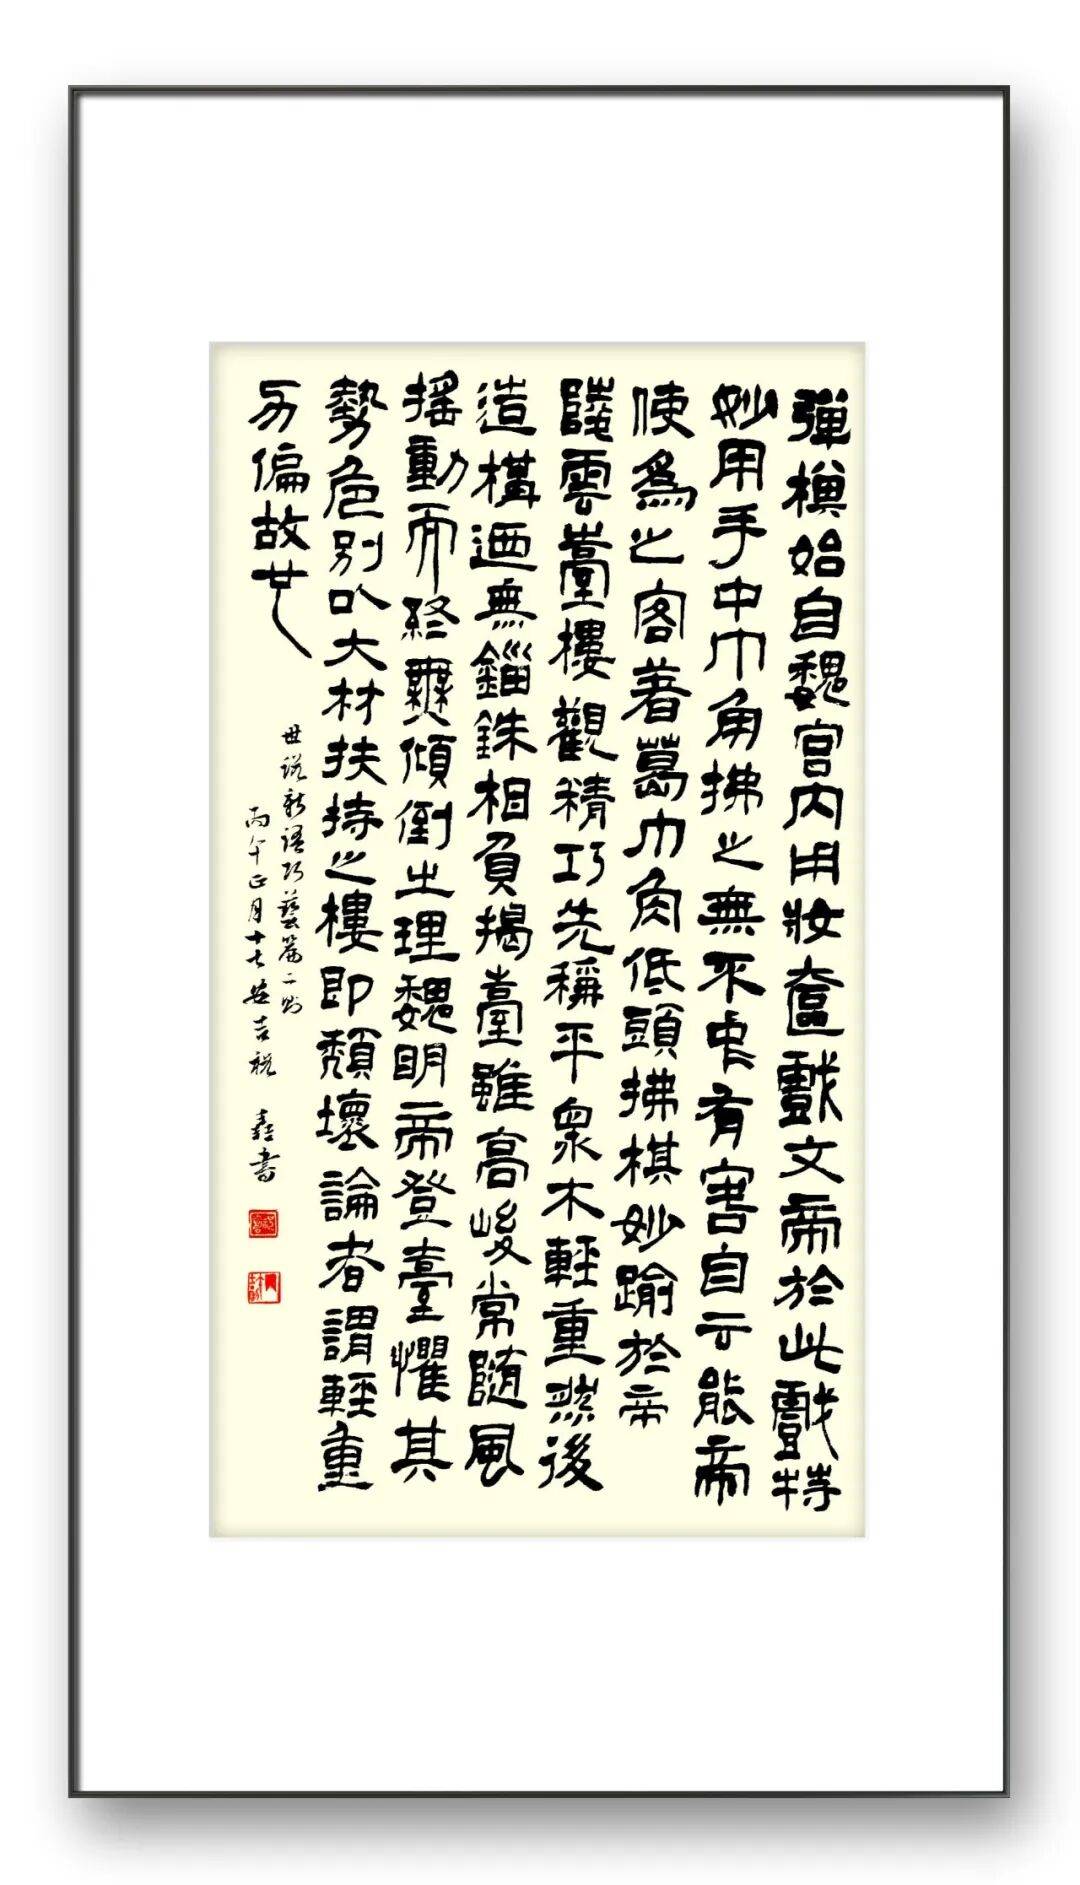 彈棋始自魏宮內用妝奩戲文帝於此戲特
妙用手中巾角拂之無不中有害自云能帝
使爲之客著葛巾角低頭拂棋妙踰於帝
陵雲臺樓觀精巧先稱平衆木輕重然後
造構迺無錙銖相負揭臺雖高峻常隨風
搖動而終無傾倒之理魏明帝登臺懼其
勢危別以大材扶持之樓即頹壞論者謂輕重
力偏故也
世說新語巧藝篇二則
丙午正月十七安吉祝書